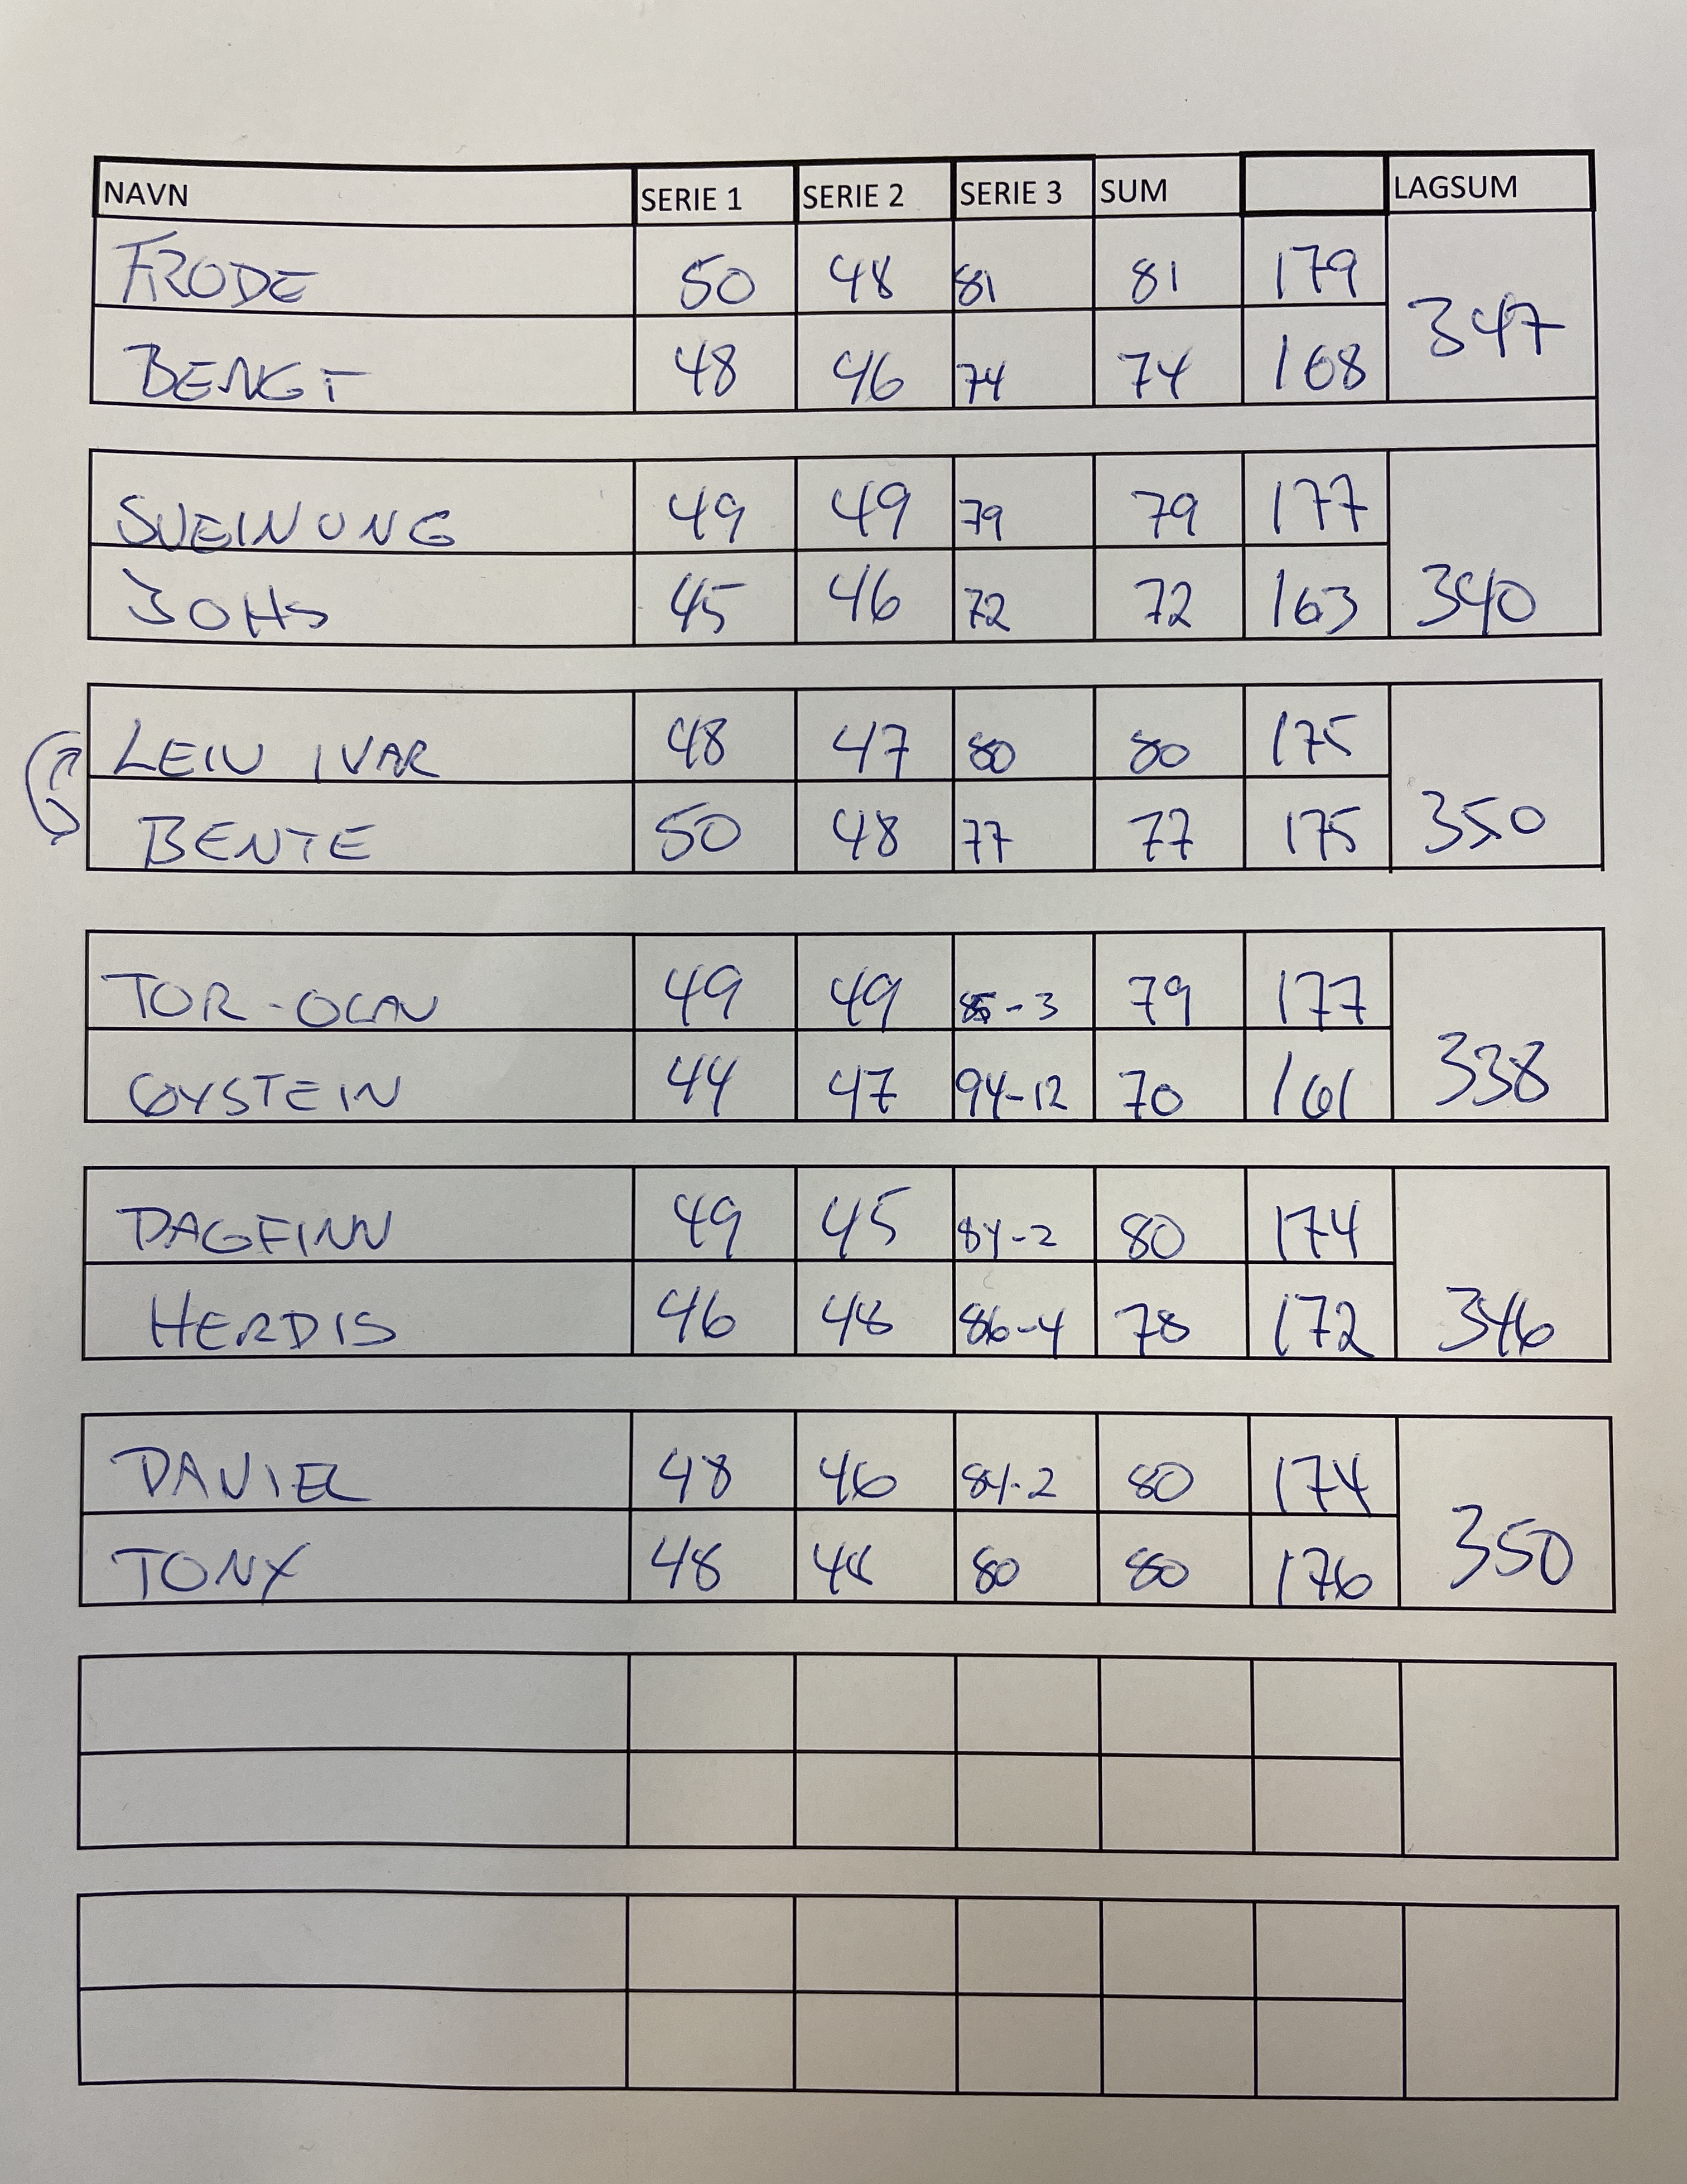 NAVN SERIE 1 SERIE 2 SERIE 3 SUM LAGSUM
FRODE 50 48 81 81 179
347
BENGT 48 46 74 74 168
SVEINUNG 49 49 79 79 177
JOHS 45 46 72 72 163 340
LEIV IVAR 48 47 80 80 175
BENTE 50 48 77 77 175 350
TOR-OLAV 49 49 85-3 79 177
ØYSTEIN 44 47 94-12 70 161 338
DAGFINN 49 45 84-2 80 174
HERDIS 46 48 86-4 78 172 346
DANIEL 48 46 84-2 80 174
TONY 48 48 80 80 176 350